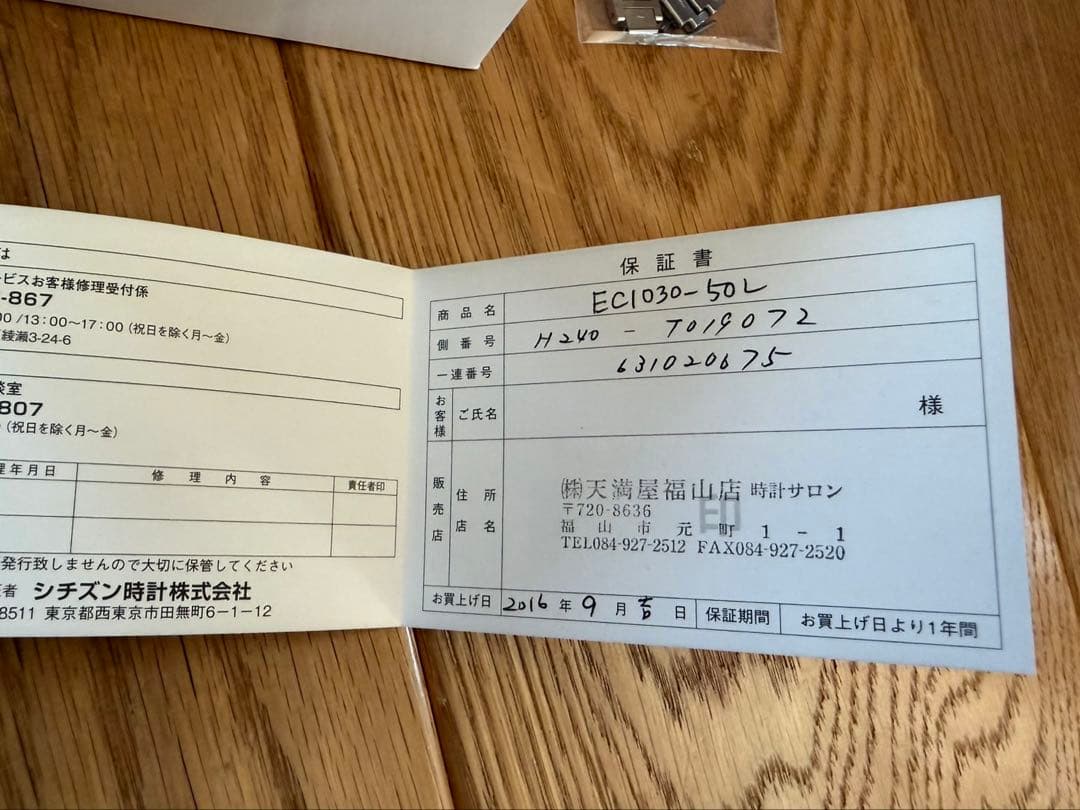 は
ービスお客様修理受付係
-867
00/13:00〜17:00(祝日を除く月〜金)
綾瀬3-24-6
談室
807
(祝日を除く月〜金)
理年月日 修理内容 責任者印
発行致しませんので大切に保管してください
証者 シチズン時計株式会社
8511 東京都西東京市田無町6-1-12
保証書
商品名 EC1030-50L
側番号 H240-T019072
一連番号 631020675
お客様 ご氏名 様
販売店 住所 店名
㈱天満屋福山店 時計サロン
〒720-8636
福山市元町1-1
TEL084-927-2512 FAX084-927-2520
印
お買上げ日 2016年9月吉日 保証期間 お買上げ日より1年間